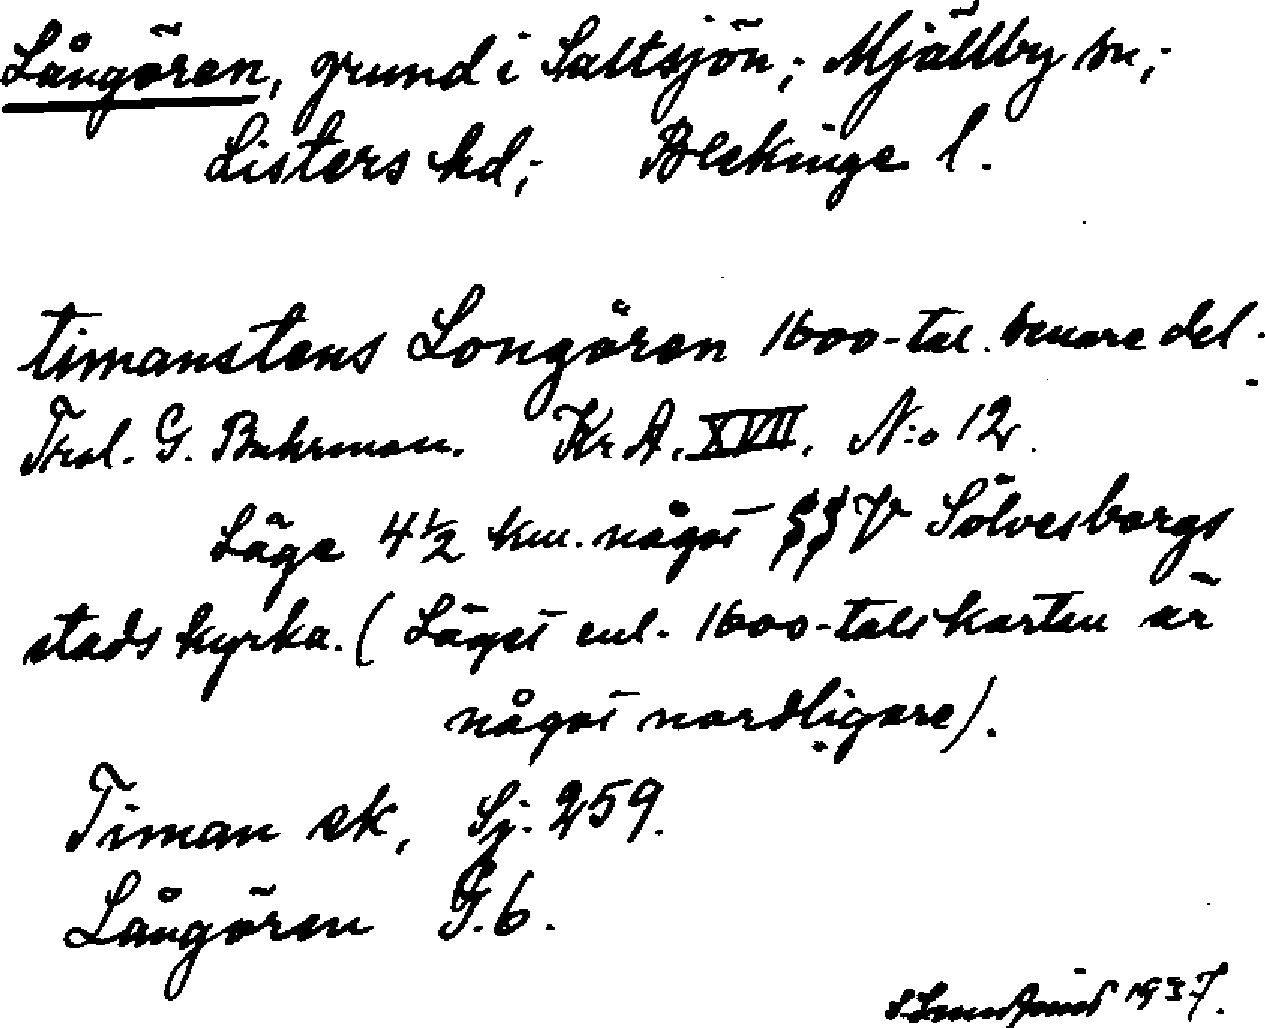 Långören, grund i Saltsjön; Mjällby sn;
Listers hd; Blekinge l.
timanstens Longören 1600-tal. senare del.
Trol. G. Buhrman. Kr.A. XVII. N:o 12.
Läge 4½ km. något §§V Sölvesborgs
stads kyrka. (Läget enl. 1600-talskartan är
något nordligare).
Timan ek, Sj. 259.
Långören G.6.
1937.